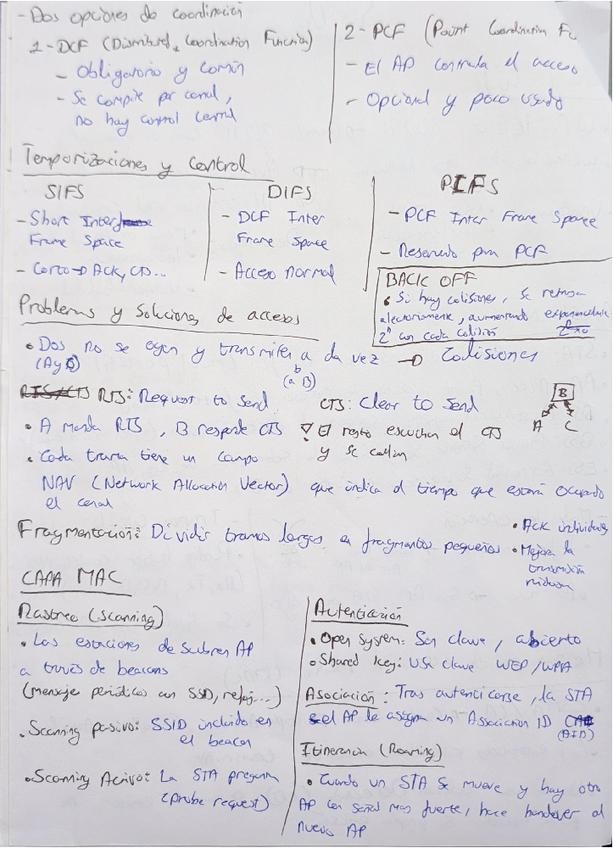 - Dos opciones de coordinación
1 - DCF (Distributed Coordination Function)
- Obligatorio y común
- Se compite por canal,
no hay control central
2 - PCF (Point Coordination Fu
- El AP controla el acceso
- Opcional y poco usado
! Temporizaciones y control
SIFS
- Short Inter
Frame Space
- Corto → Ack, CTS...
DIFS
- DCF Inter
Frame Space
- Acceso normal
PIFS
- PCF Inter Frame Space
- Reservado para PCF
BACK OFF
• Si hay colisiones, se retrasa
aleatoriamente, aumentando exponencial
2ⁿ con cada colisión
Problemas y soluciones de accesos
• Dos no se oyen y transmiten a la vez → Colisiones
(A y C)
(a B)
RTS/CTS RTS: Request to Send CTS: Clear to Send
B
A C
• A manda RTS, B responde CTS
El resto escuchan el CTS
y se callan
• Cada trama tiene un campo
NAV (Network Allocation Vector) que indica el tiempo que estará ocupado
el canal
Fragmentación: Dividir tramas largas en fragmentos pequeños
• Ack individuales
• Mejora la
transmisión
CAPA MAC
Rastreo (Scanning)
• Las estaciones descubren AP
a través de beacons
(mensaje periódicos con SSID, reloj,...)
• Scanning pasivo: SSID incluido en
el beacon
• Scanning Activo: La STA pregunta
(probe request)
Autenticación
• Open System: Sin clave, abierto
• Shared Key: Usa clave WEP/WPA
Asociación: Tras autenticarse, la STA
el AP le asigna un Association ID
(AID)
Itinerancia (Roaming)
• Cuando un STA se mueve y hay otro
AP con señal mas fuerte, hace handover al
nuevo AP